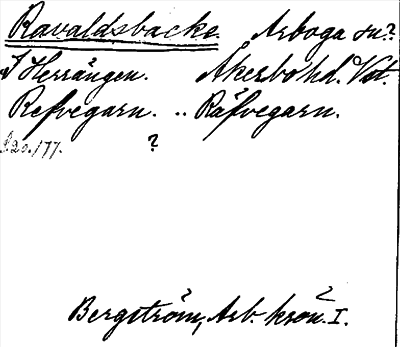 Ravaldsbacke. Arboga sn?
I Herrängen. Åkerbo hd. Vst.
Refvegarn. .. Räfvegarn.
S. 20./77. ?
Bergström, Arb. krön. I.